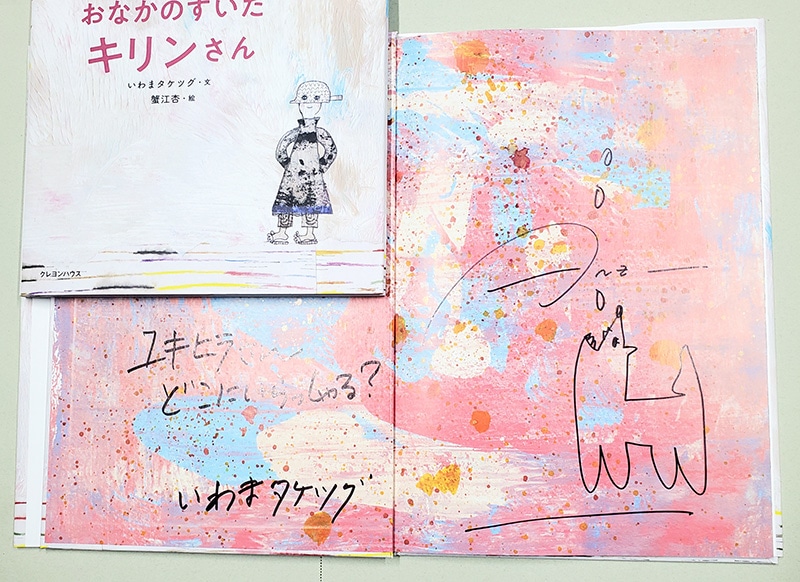 おなかのすいた
キリンさん
いわまタケツグ・文
蟹江杏・絵
クレヨンハウス
ユキヒラ
どこにいらっしゃる?
いわまタケツグ